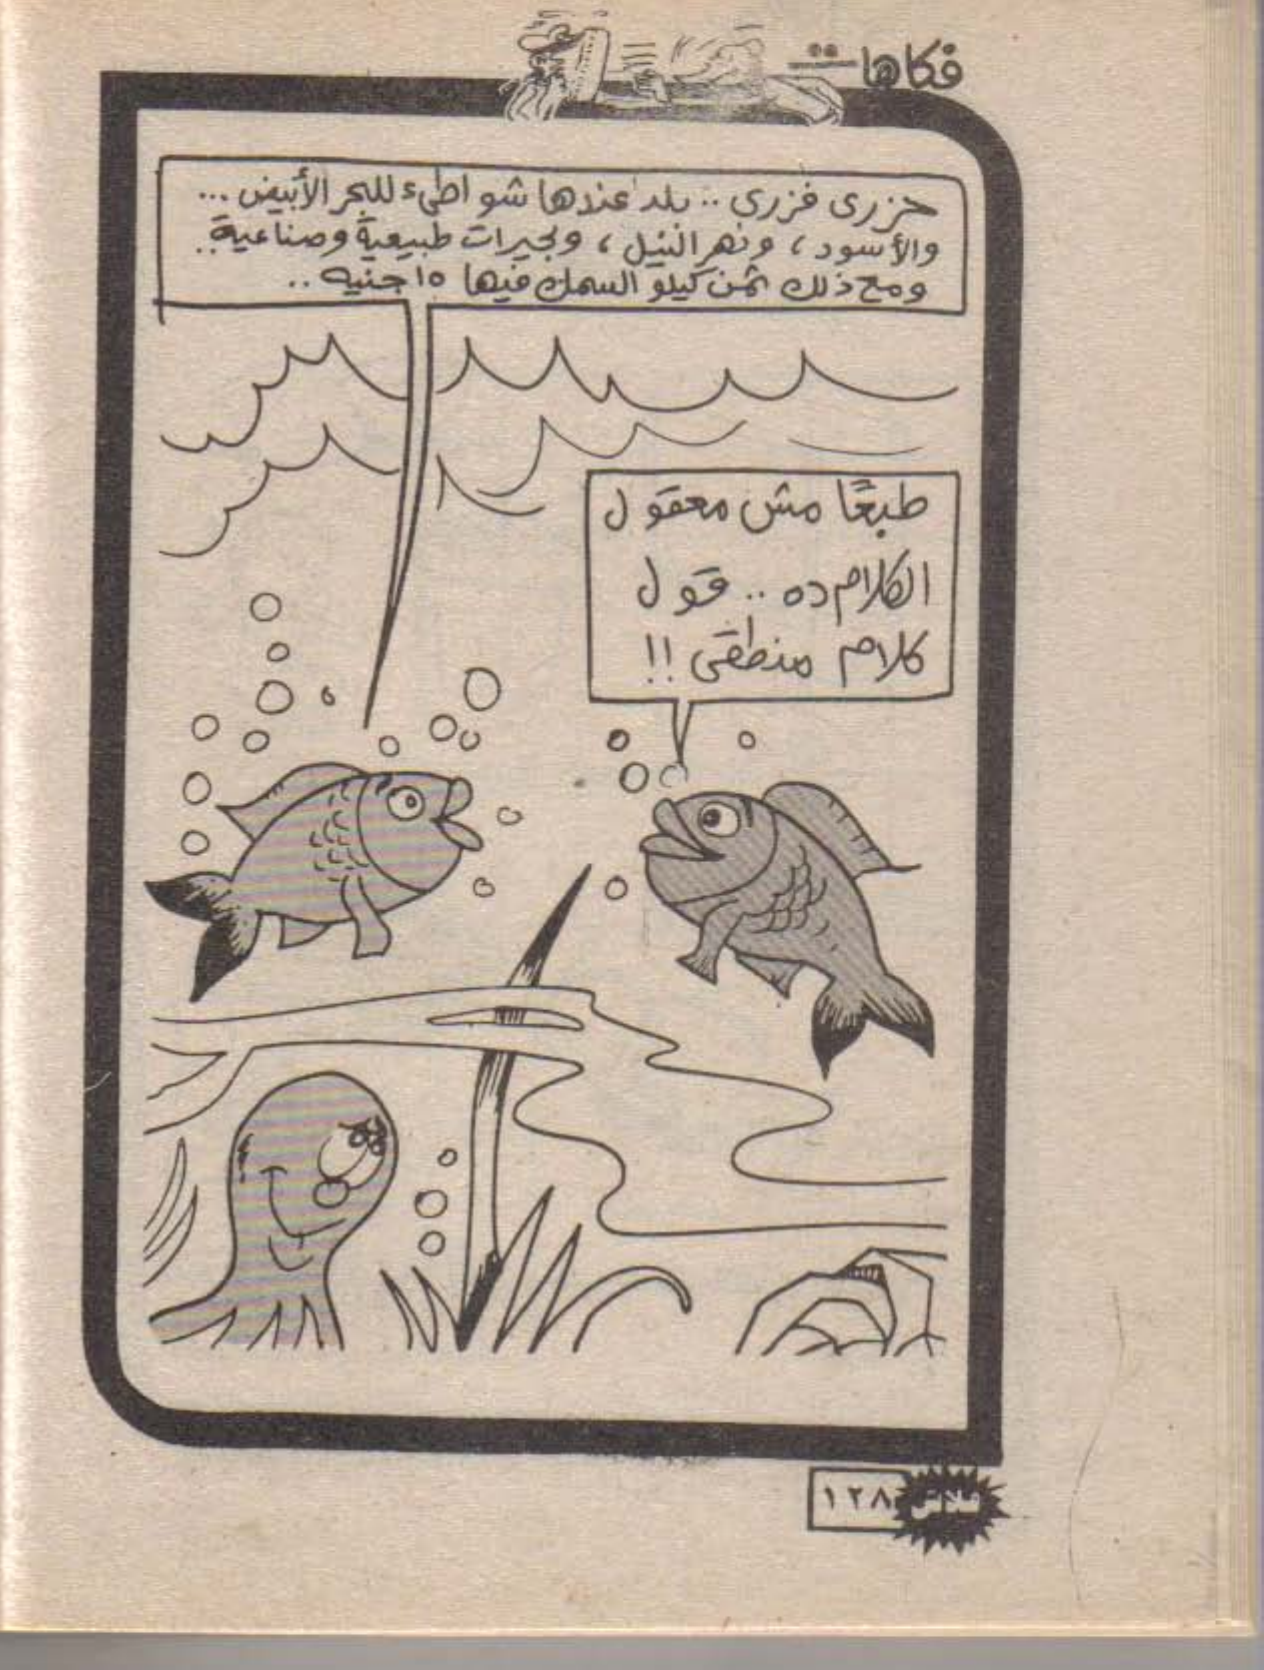 فكاهات
حزرى فزرى .. بلد عندها شواطىء للبحر الأبيض ...
والأسود ، ونهر النيل ، وبحيرات طبيعية وصناعية ..
ومع ذلك ثمن كيلو السمك فيها ١٥ جنيه ..
طبعًا مش معقول
الكلام ده .. قول
كلام منطقى !!
فلاش ١٢٨